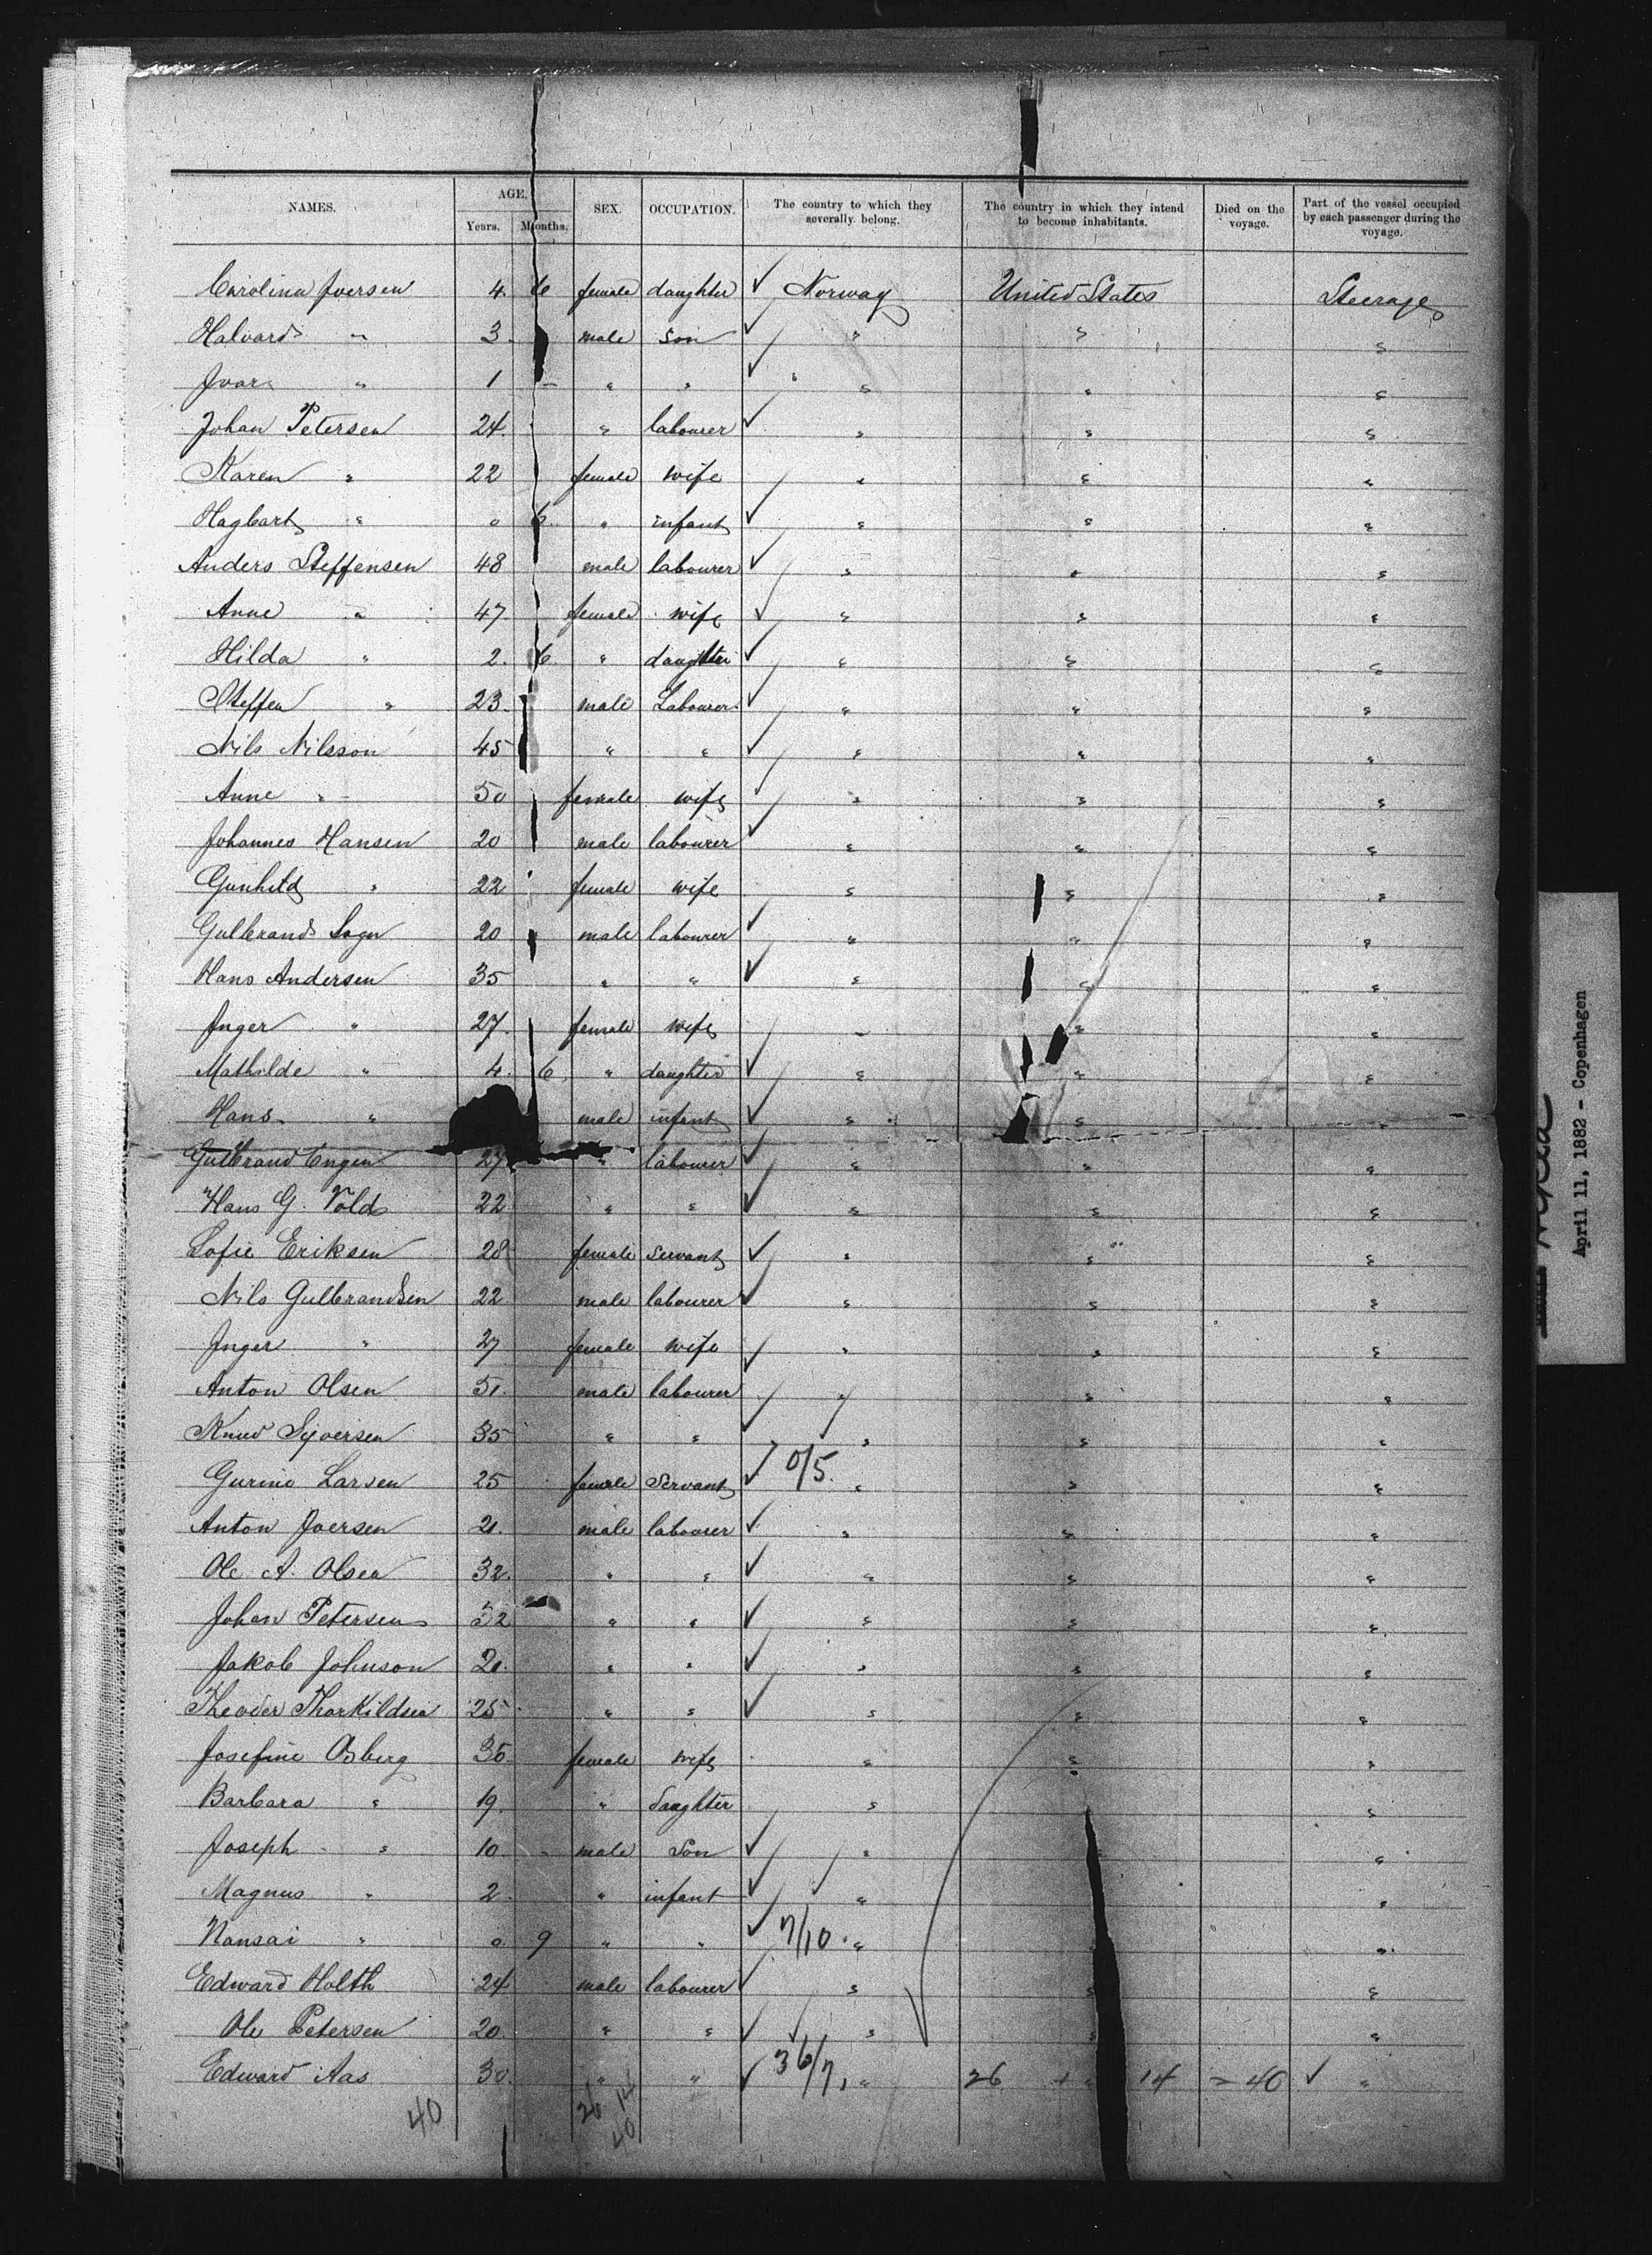 NAMES. AGE. SEX. OCCUPATION. The country to which they severally belong. The country in which they intend to become inhabitants. Died on the voyage. Part of the vessel occupied by each passenger during the voyage.
Years. Months.
Carolina Iversen 4. 6 female daughter ✓ Norway United States Steerage
Halvard " 3. male son ✓ " " "
Ivar " 1 - " " ✓ " " "
Johan Petersen 24. " labourer ✓ " " "
Karen " 22 female wife " " "
Hagbart " 0 6. " infant ✓ " " "
Anders Steffensen 48 male labourer ✓ " " "
Anne " 47. female wife ✓ " " "
Hilda " 2. 6. " daughter ✓ " " "
Steffen " 23. male Labourer ✓ " " "
Nils Nilsson 45 " " ✓ " " "
Anne " 50 female wife ✓ " " "
Johannes Hansen 20 male labourer ✓ " " "
Gunhild " 22 female wife " " "
Gulbrand Sogn 20 male labourer ✓ " " "
Hans Andersen 35 " " ✓ " " "
Inger " 27. female wife " " "
Mathilde " 4. 6. " daughter ✓ " " "
Hans " male infant ✓ " " "
Gulbrand Engen 27 " labourer ✓ " " "
Hans G. Vold 22 " " ✓ " " "
Sofie Eriksen 28 female servant ✓ " " "
Nils Gulbrandsen 22. male labourer ✓ " " "
Inger " 27 female wife ✓ " " "
Anton Olsen 51. male labourer ✓ " " "
Knud Syversen 35 " " ✓ " " "
Gurine Larsen 25 female Servant ✓ 0/5. " " "
Anton Iversen 21. male labourer ✓ " " "
Ole A. Olsen 32. " " ✓ " " "
Johan Petersen 22 " " ✓ " " "
Jakob Johnson 21. " " ✓ " " "
Theodor Thorkildsen 25 " " ✓ " " "
Josefine Osberg 35 female wife " " "
Barbara " 19. " daughter " "
Joseph " 10 male Son ✓ " "
Magnus " 2. " infant ✓ " "
Nansai " 0. 9 " " ✓ 7/10. " "
Edward Holth 24 male labourer ✓ " " "
Ole Petersen 20. " " ✓ " " "
Edward Aas 30. " " ✓ 36/7, " 26 + 14 = 40 ✓ "
40 26 14
40
April 11, 1882 - Copenhagen